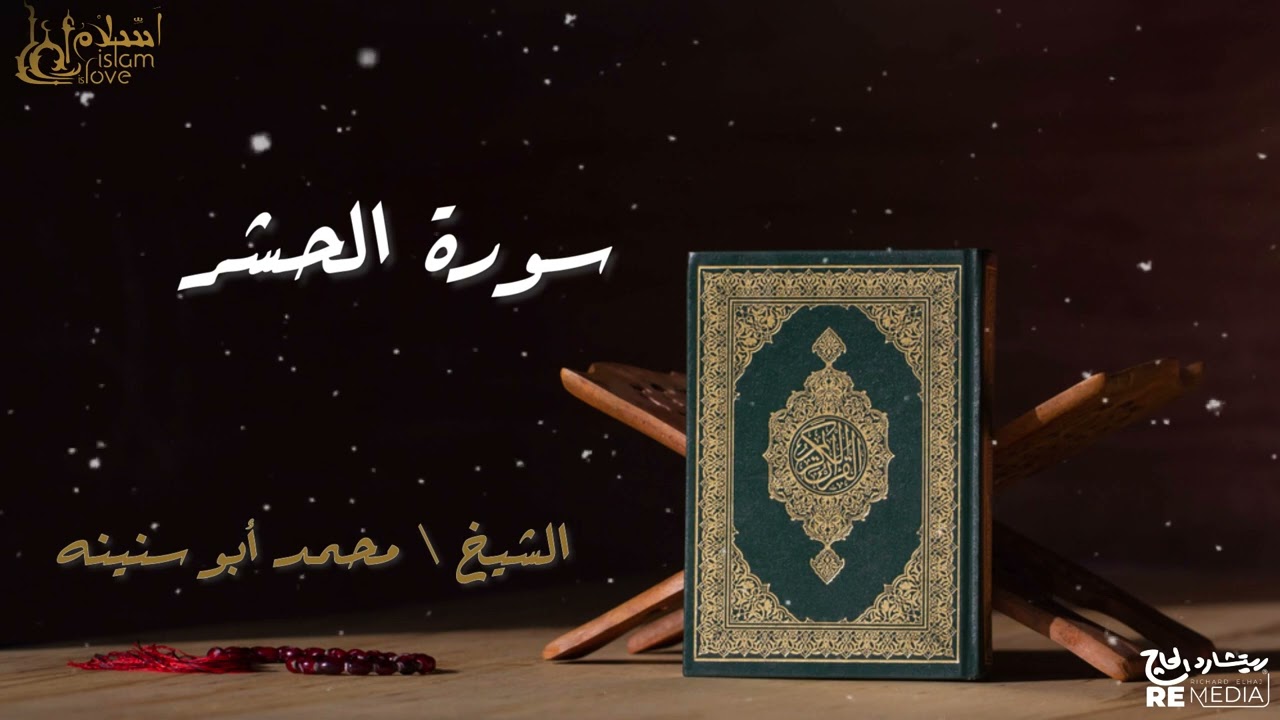 اسلام
islam
is love
سورة الحشر
الشيخ \ محمد أبو سنينه
القرآن الكريم
ريتشارد الحاج
RICHARD ELHAJ
RE MEDIA